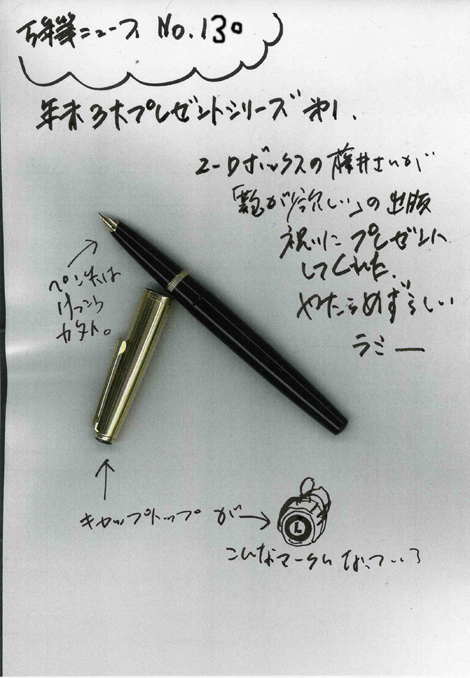 万年筆ニュース No.130
年末3大プレゼントシリーズ 第1.
ユーロボックスの藤井さんが
が欲しい」の出版
祝いに プレゼントに
してくれた.
やたらめずらしい
ラミー
ペン先は
けっこう
カタイ。
キャップトップ が
L
こんなマークになっている